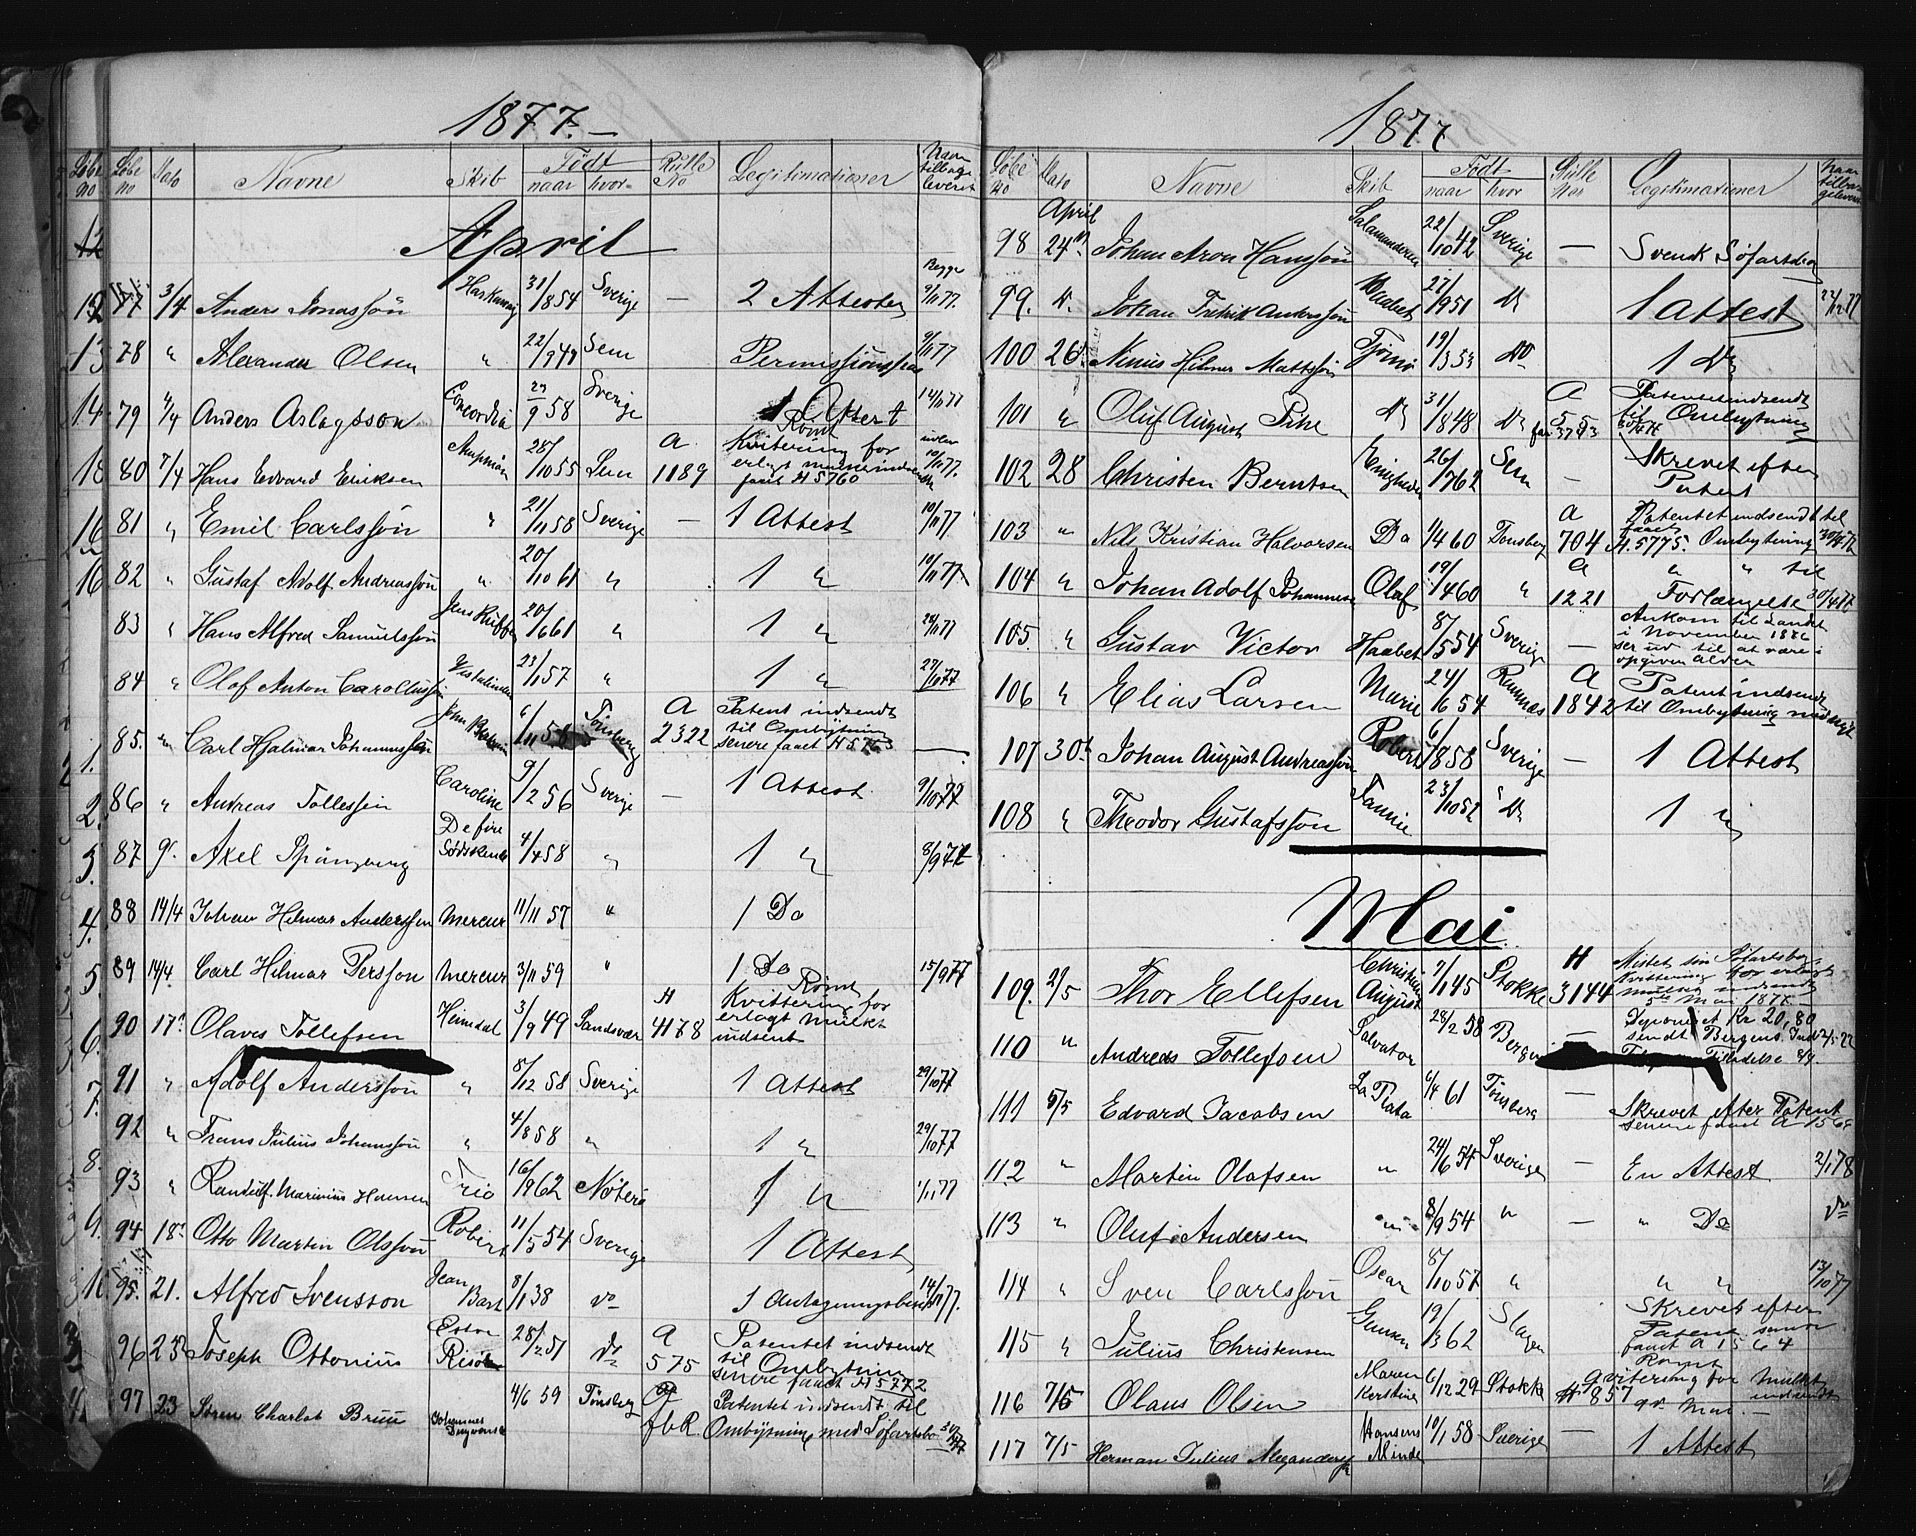 1877.
Løbe No Løbe No Dato Navne Skib Født naar hvor Rulle No Legitimationer Naar tilbage leveret
April
12 77 3/4 Anders Jonassön 31/8 54 Sverige — 2 Attester Begge 9/11 77.
13 78 " Alexander Olsen " 22/9 Sem Permissionspas 9/11 77
14 79 4/4 Anders Aslagsson Concordia 29/9 58 Sverige 1 Attest 14/11 77
80 7/4 Hans Edvard Eriksen 28/10 55 Sem A 1189 Rømt Kvitering for erlagt mulct indsendt faaet H 5760 10/11 77.
16 81 " Emil Carlssön " 21/11 58 Sverige — 1 Attest 10/11 77.
82 " Gustaf Adolf Andreassön " 20/10 61 " 1 "
83 " Hans Alfred Samuelssön 20/6 61 " 1 "
84 " Olof Anton Carolussön 23/1 57 " 1 " 27/10 77
85. " Carl Hjalmar Johannessön John 6/11 58 Tønsberg A 2322 Patent indsendt til Ombytning senere faaet H 5763 —
86 " Andreas Tollessön Caroline 9/2 56 Sverige — 1 Attest 9/10 77
87 9. Axel De fire Sødskende 4/4 58 " 1 " 8/9 77
88 14/4 Johan Hilmar Anderssen Mercur 11/11 57 " 1 Do
89 14/4. Carl Hilmar Persson Mercur 3/11 59 " 1 Do 15/9 77
90 17. Olaves Tollefsen Heimdal 3/9 49 Sandsvær H 4178 Rømt Kvittering for erlagt Mulkt indsent
91 " Adolf Anderssön " 8/12 58 Sverige 1 Attest 29/10 77
92 " Frans Julius Johanssön " 4/8 58 " 1 " 29/10 77
93 " Randulf Marinius Hansen Trio 16/9 62 Nøterø 1 " 1/11 77
94 18. Otto Martin Olssön Robert 11/5 54 Sverige 1 Attest
95. 21. Alfred Svensson Jean Bart 8/1 38 do 1 14/11 77.
96 23 Joseph Ottonius Risør 28/2 51 do A 575 Patentet indsendt til Ombytning senere faaet H 5772
97 23 Søren Charlot Bruu Johannes 4/6 59 Tønsberg Patentet indsendt til Ombytning med Søfartsbog
1877
Løbe No Dato Navne Skib Født naar hvor Rulle Nos Legitimationer Naar tilbageleveret
April
98 24 Johan Aron Hanssön Salamanderen 22/10 42 Sverige — Svensk Søfartsbog
99. Do. Johan Fredrik Anderssön Haabet 27/9 51 Do 1 Attest 22/12 77
100 26. Nimius Hilmer Mattssön Tjømø 19/3 53 Do 1 Do
101 " Oluf August Do 31/8 48 Do A Patentet indsendt til Ombytning
102 28 Christen Berntsen Enigheden 26/7 62 Sem — Skrevet efter Patent
103 " Nils Kristian Halvorsen Do 1/4 60 Tønsberg A 704 Patentet indsendt til faaet H. 5775. Ombytning 30/4 77
104 " Johan Adolf Johannesen Olaf 19/4 60 " A 1221 " " til Forlængelse 30/4 77
105. " Gustav Victor Haabet 8/5 54 Sverige — Ankom til Landet i November 1876 ser ud til at være i opgiven alder
106 " Elias Larsen Marie 24/1 54 Ramnæs A 1842 Patent indsendt til Ombytning
107 30 Johan August Andreassön Robert 6/8 58 Sverige — 1 Attest
108 " Theodor Gustafssön Fannie 23/10 52 Do 1 "
Mai
109. 2/5 Thor Ellefsen Christian August 7/1 45 Stokke H 3144 Mistet sin Søfartsbog, Kvittering for erlagt mulkt indsendt 5te Mai 1877 —
110 " Andreas Tollefsen Salvator 28/2 58 Bergen — Kr 20,80 sendt Bergens
111 5/5 Edvard Jacobsen La Plata 6/4 61 Tønsberg — Skrevet efter Patent senere faaet A 156
112 " Martin Olafsen " 24/6 54 Sverige — En Attest 2/1 78
113 " Oluf Andersen " 8/9 54 " — " Do Do
114 " Sven Carlssön Oscar 8/10 57 " " " 13/10 77
115 " Julius Christensen 19/3 62 Slagen Skrevet efter Patent senere faaet A 1564
116 7/5 Olaus Olsen Maren Kerstine 6/12 29 Stokke H 857 Rømt qvitering for Mulkt indsendt 9de Mai. —
117 7/5 Herman Julius Alexandersen Hansens Minde 10/1 58 Sverige — 1 Attest